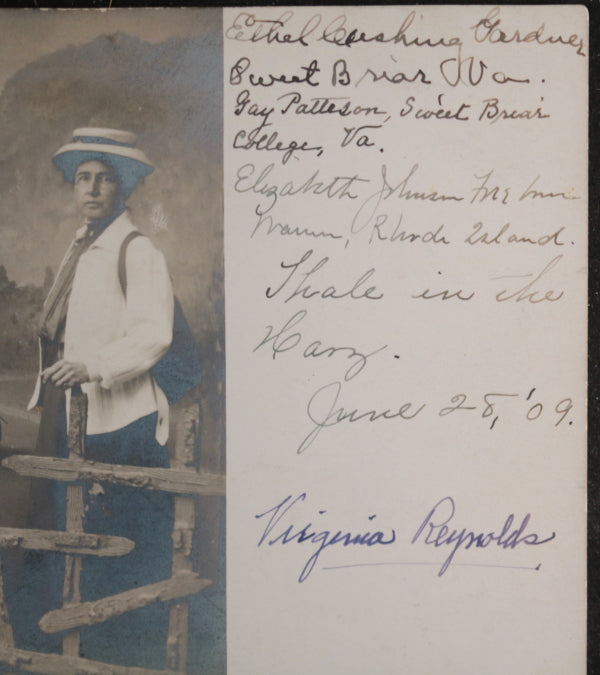 Ethel Cushing Gardner
Sweet Briar Va.
Gay Patteson, Sweet Briar
College, Va.
Elizabeth Johnson
Warren, Rhode Island.
Thale in the
Harz.
June 28, '09.
Virginia Reynolds